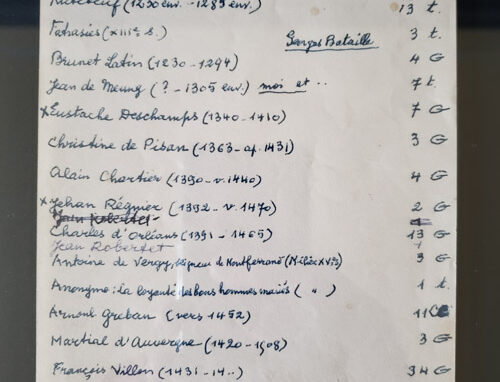 Rutebeuf (1230 env. - 1285 env.) 13 t.
Fatrasies (XIIIe s.) Georges Bataille 3 t.
Brunet Latin (1230-1294) 4 G
Jean de Meung (? - 1305 env.) moi et .. 7 t.
x Eustache Deschamps (1340-1410) 7 G
Christine de Pisan (1363-ap. 1431) 3 G
Alain Chartier (1390-v. 1440) 4 G
x Jehan Régnier (1392-v. 1470) 2 G
Jean Robertet 1
Charles d'Orléans (1391-1465) 13 G
Jean Robertet 1
Antoine de Vergy, seigneur de Montferrand (Milieu XVe s) 3 G
Anonyme : la loyauté des bons hommes mariés ( " ) 1 t.
Arnoul Greban (vers 1452) 11
Martial d'Auvergne (1420-1508) 3 G
François Villon (1431-14..) 34 G